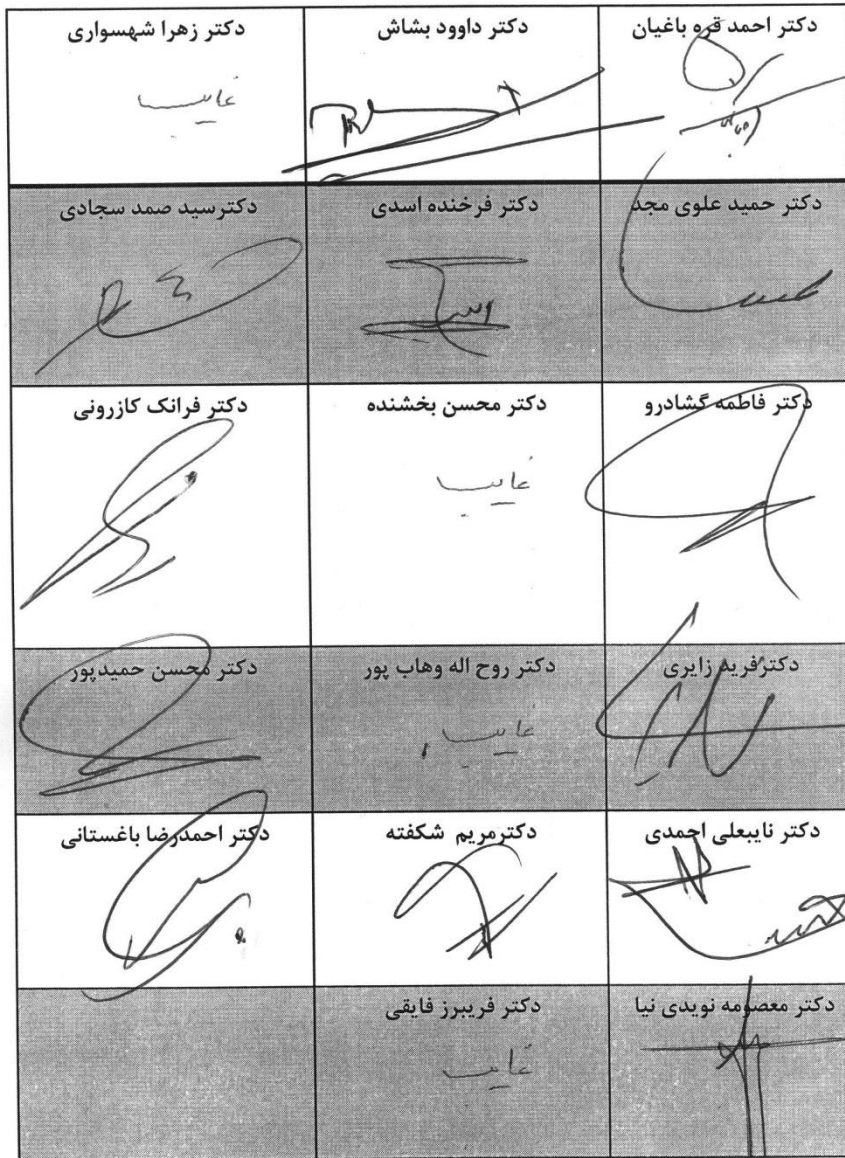 دکتر احمد قره باغیان
دکتر داوود بشاش
دکتر زهرا شهسواری
غایب
دکتر حمید علوی مجد
دکتر فرخنده اسدی
دکترسید صمد سجادی
دکتر فاطمه گشادرو
دکتر محسن بخشنده
غایب
دکتر فرانک کازرونی
دکترفرید زایری
دکتر روح اله وهاب پور
غایب
دکتر محسن حمیدپور
دکتر نایبعلی احمدی
دکترمریم شکفته
دکتر احمدرضا باغستانی
دکتر معصومه نویدی نیا
دکتر فریبرز فایقی
غایب